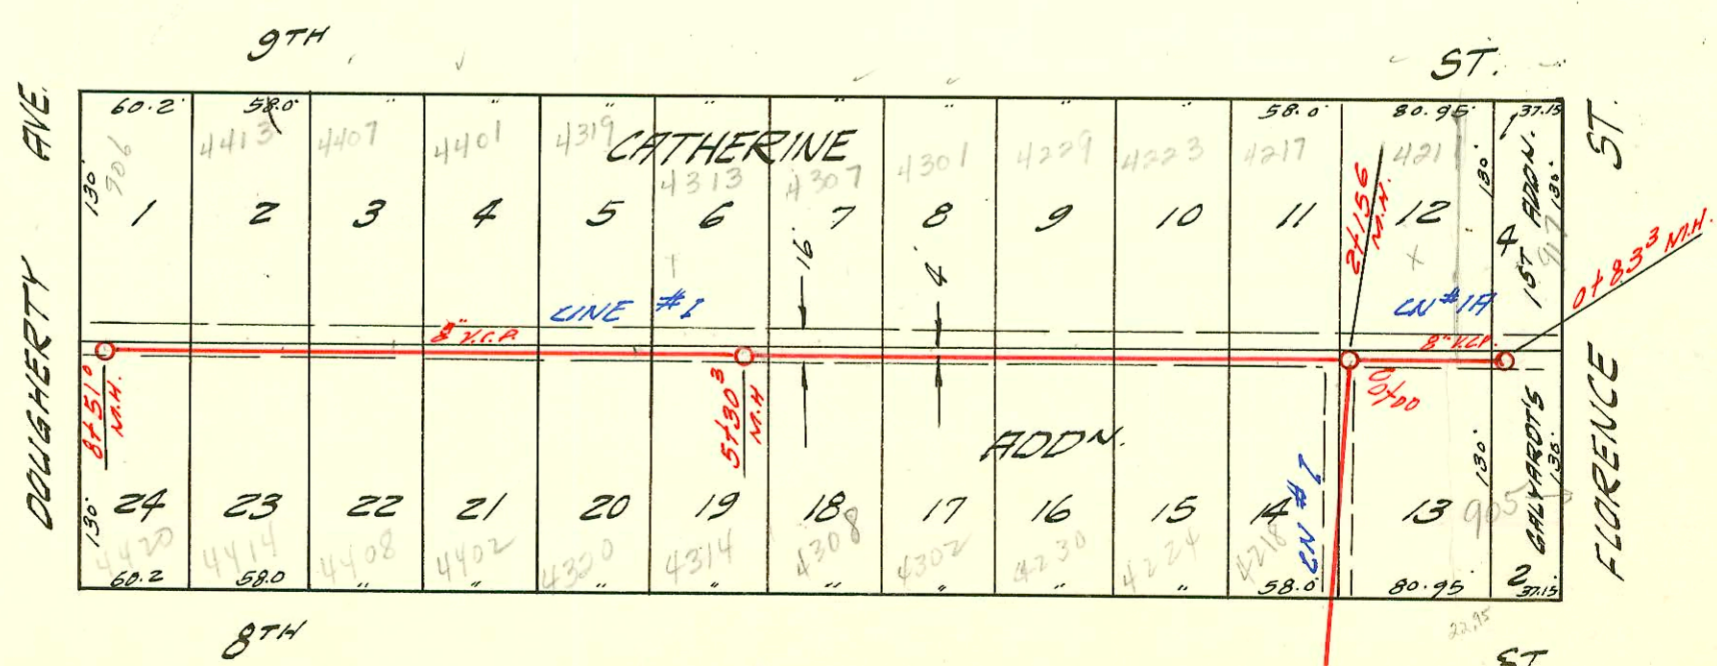 9TH ST.
DOUGHERTY AVE.
FLORENCE ST.
60.2' 58.0' " " " " " " " 58.0' 80.95' 37.15
906 4413 4407 4401 4319 4313 4307 4301 4229 4223 4217 421
CATHERINE
130' 130' 130'
1 2 3 4 5 6 7 8 9 10 11 12 4
1ST ADDN.
917
16' 4'
2+156 M.H.
0+83³ M.H.
LINE #1
LN #1A
8" V.C.P.
8" V.C.P.
8+51⁰ M.H.
5+30³ M.H
0+00
ADDN.
LN #1
130' 130' 130'
GALYARDT'S
24 23 22 21 20 19 18 17 16 15 14 13 2
905
4420 4414 4408 4402 4320 4314 4308 4302 4230 4224 4218
60.2 58.0 " " " " " " " " 58.0' 80.95' 37.15
22.95
8TH ST